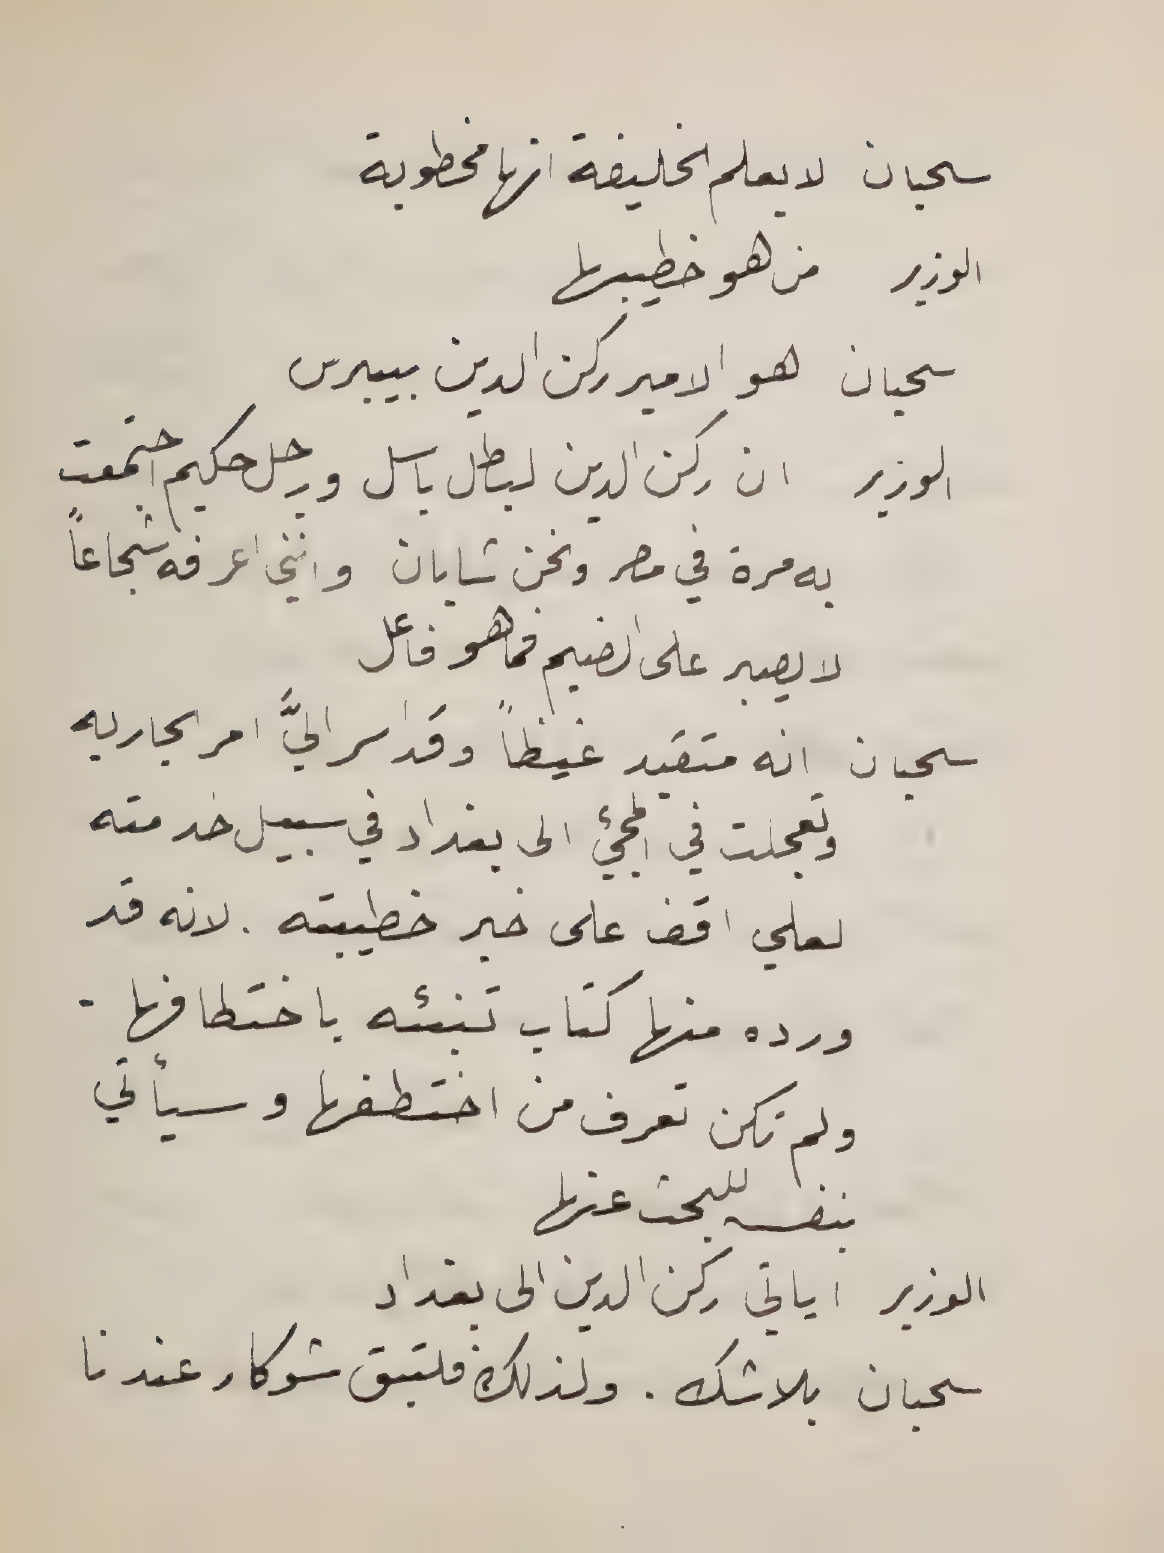 سحبان لا يعلم الخليفة انها مخطوبة
الوزير من هو خطيبها
سحبان هو الامير ركن الدين بيبرس
الوزير ان ركن الدين لبطل باسل ورجل حكيم اجتمعت
به مرة في مصر ونحن شابان وانني اعرفه شجاعاً
لا يصبر على الضيم فما هو فاعل
سحبان انه متقيد غيظاً وقد اسر اليَّ امر الجاريه
وتعجلت في المجئ الى بغداد في سبيل خدمته
لعلي اقف على خبر خطيبته . لانه قد
ورده منها كتاب تنبئه باختطافها -
ولم تكن تعرف من اختطفها وسيأتي
بنفسه للبحث عنها
الوزير اياتي ركن الدين الى بغداد
سحبان بلا شك . ولذلك فلتبق شوكار عندنا